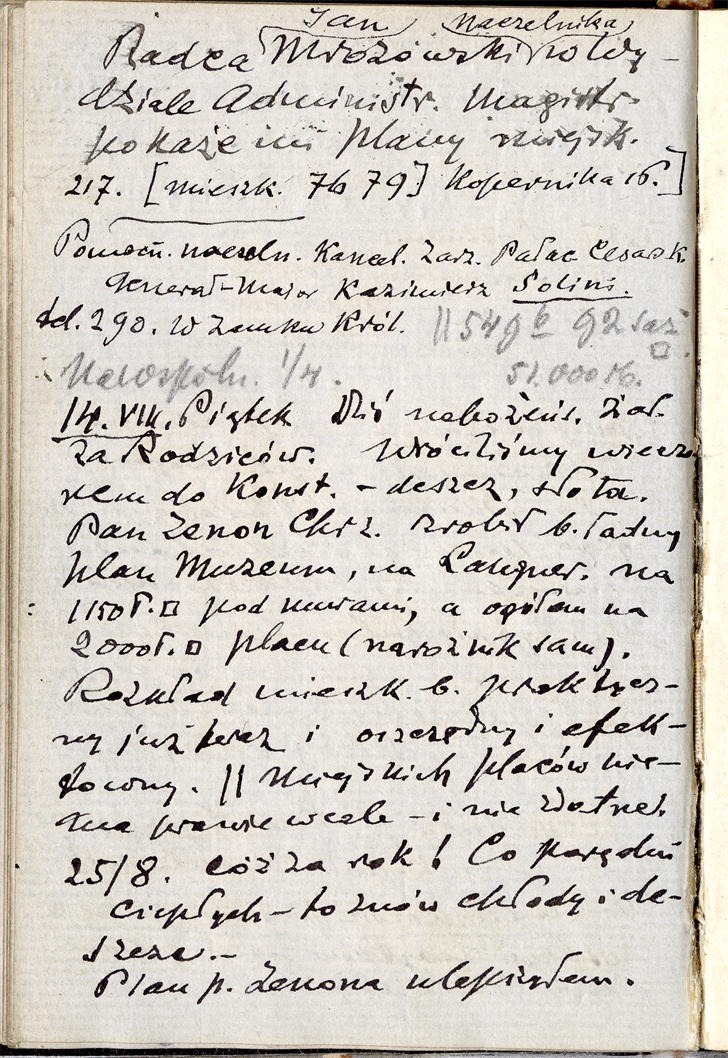 Jan Naczelnika
Radca Mrozowski po Wy-
dziale Administr. Magistr.
pokaże mi plany miejsk.
217. [mieszk. 76 79] Kopernika 16.]
Pomocn. naczeln. Kancel. Zarz. Pałac Cesarsk.
Generał-Major Kazimierz Solini.
tel. 290. W Zamku Król. || 549 92 saż □.
1/4. 51.000 rb.
14. VIII. Piątek Dziś nabożeńs. żał.
za Rodziców. Wróciliśmy wieczo
rem do Konst. – deszcz, słota.
Pan Zenon Chrz. zrobił b. ładny
plan Muzeum, na na
1150 ł.□ pod murami, a ogółem na
2000 ł.□ placu (narożnik sam).
Rozkład mieszk. b. praktycz-
ny już teraz i oszczędny i efek-
towny. || Miejskich placów nie-
ma prawie wcale – i nie zdatne.
25/8. Cóż za rok! Co parę dni
ciepłych – to znów chłody i de-
szcze. –
Plan p. Zenona ulepszyłem.